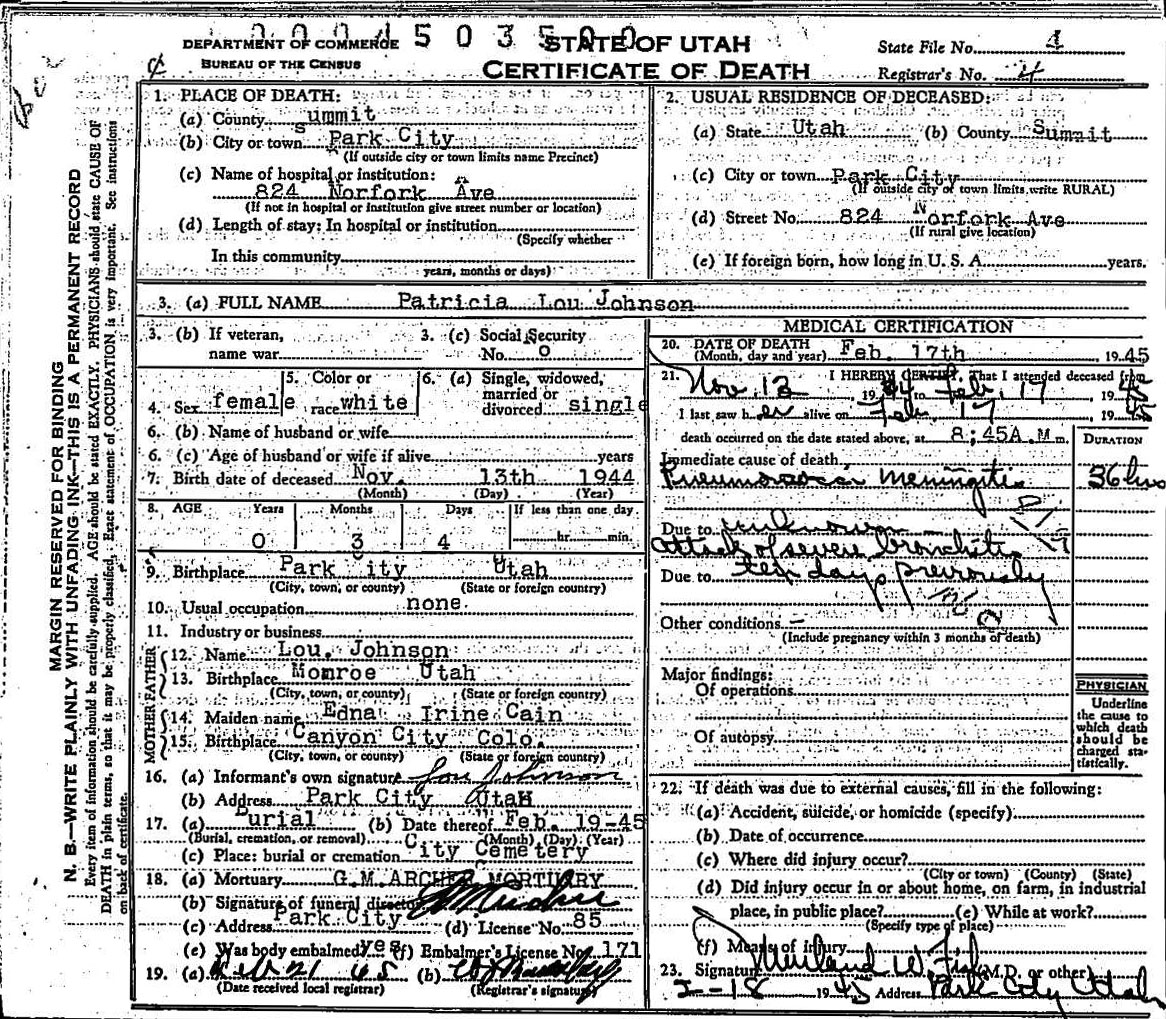 00045035 00
DEPARTMENT OF COMMERCE
BUREAU OF THE CENSUS
STATE OF UTAH
CERTIFICATE OF DEATH
State File No. 4
Registrar's No. 4
MARGIN RESERVED FOR BINDING
N. B.—WRITE PLAINLY WITH UNFADING INK—THIS IS A PERMANENT RECORD
Every item of information should be carefully supplied. AGE should be stated EXACTLY. PHYSICIANS should state CAUSE OF
DEATH in plain terms, so that it may be properly classified. Exact statement of OCCUPATION is very important. See instructions
on back of certificate.
1. PLACE OF DEATH:
(a) County Summit
(b) City or town Park City
(If outside city or town limits name Precinct)
(c) Name of hospital or institution:
824 Norfork Ave
(If not in hospital or institution give street number or location)
(d) Length of stay: In hospital or institution
(Specify whether
In this community
years, months or days)
2. USUAL RESIDENCE OF DECEASED:
(a) State Utah (b) County Summit
(c) City or town Park City
(If outside city or town limits, write RURAL)
(d) Street No. 824 Norfork Ave
(If rural give location)
(e) If foreign born, how long in U. S. A. years.
3. (a) FULL NAME Patricia Lou Johnson
3. (b) If veteran, name war
3. (c) Social Security No. 0
4. Sex female
5. Color or race white
6. (a) Single, widowed, married or divorced single
6. (b) Name of husband or wife
6. (c) Age of husband or wife if alive years
7. Birth date of deceased Nov. 13th 1944
(Month) (Day) (Year)
8. AGE Years Months Days If less than one day
0 3 4 hr. min.
9. Birthplace Park City Utah
(City, town, or county) (State or foreign country)
10. Usual occupation none.
11. Industry or business
FATHER
12. Name Lou. Johnson
13. Birthplace Monroe Utah
(City, town, or county) (State or foreign country)
MOTHER
14. Maiden name Edna Irine Cain
15. Birthplace Canyon City Colo.
(City, town, or county) (State or foreign country)
16. (a) Informant's own signature Lou Johnson
(b) Address Park City Utah
17. (a) Burial (b) Date thereof Feb. 19-45
(Burial, cremation, or removal) (Month) (Day) (Year)
(c) Place: burial or cremation City Cemetery
18. (a) Mortuary G.M.ARCHER MORTUARY
(b) Signature of funeral director GMArcher
(c) Address Park City (d) License No. 85
(e) Was body embalmed yes (f) Embalmer's License No. 171
19. (a) Feb 21 45 (b)
(Date received local registrar) (Registrar's signature)
MEDICAL CERTIFICATION
20. DATE OF DEATH
(Month, day and year) Feb. 17th 1945
21. I HEREBY CERTIFY, That I attended deceased from
Nov. 13 1944 to Feb. 17 1945
I last saw her alive on Feb. 17 1945
death occurred on the date stated above, at 8:45A.M m.
DURATION
Immediate cause of death
Pneumococci Meningitis 36 hrs
Due to unknown
attack of severe bronchitis
Due to ten days previously
Other conditions —
(Include pregnancy within 3 months of death)
Major findings:
Of operations
Of autopsy
PHYSICIAN
Underline
the cause to
which death
should be
charged sta-
tistically.
22. If death was due to external causes, fill in the following:
(a) Accident, suicide, or homicide (specify)
(b) Date of occurrence
(c) Where did injury occur?
(City or town) (County) (State)
(d) Did injury occur in or about home, on farm, in industrial
place, in public place? (e) While at work?
(Specify type of place)
(f) Means of injury
23. Signature W. (M.D. or other)
2-18 1945 Address Park City Utah